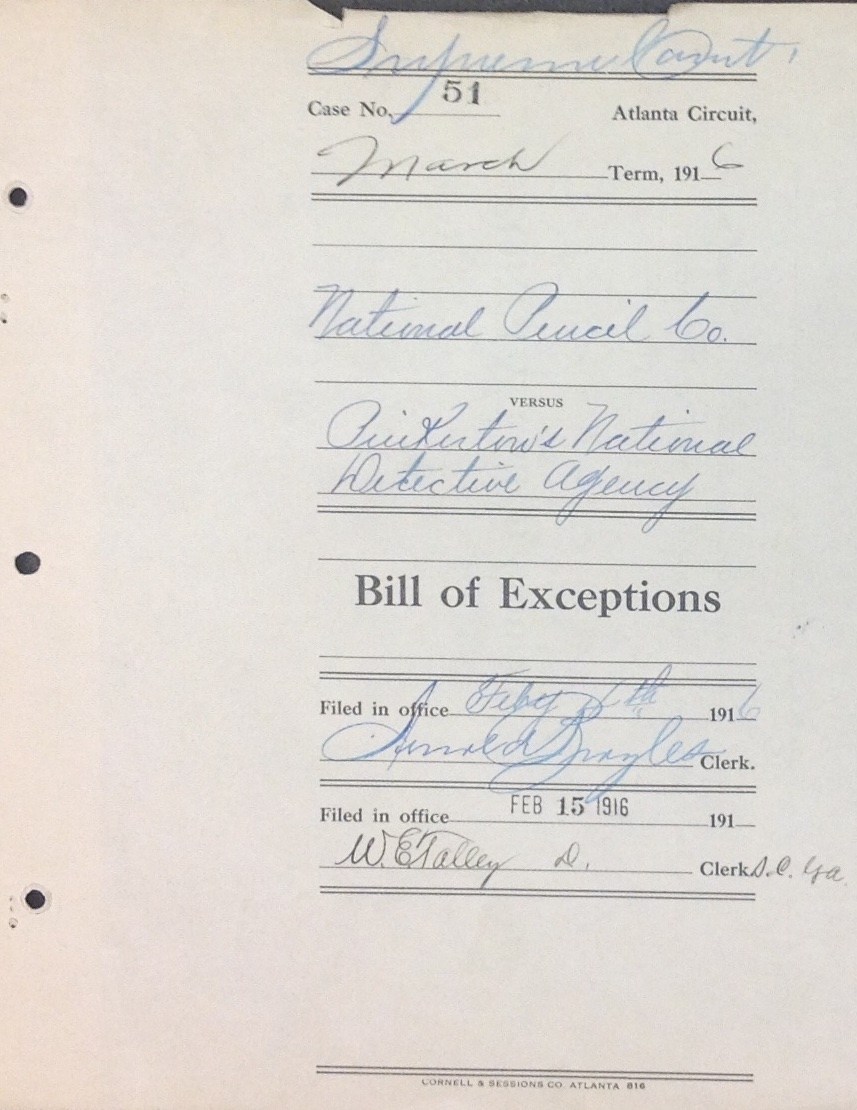 Supreme Court
Case No. 51 Atlanta Circuit,
March Term, 1916
National Pencil Co.
VERSUS
Pinkerton's National
Detective Agency
Bill of Exceptions
Filed in office Feby th 1916
Arnold Broyles Clerk.
Filed in office FEB 15 1916 191
W. E. Talley D. Clerk S. C. Ga.
CORNELL & SESSIONS CO. ATLANTA 816